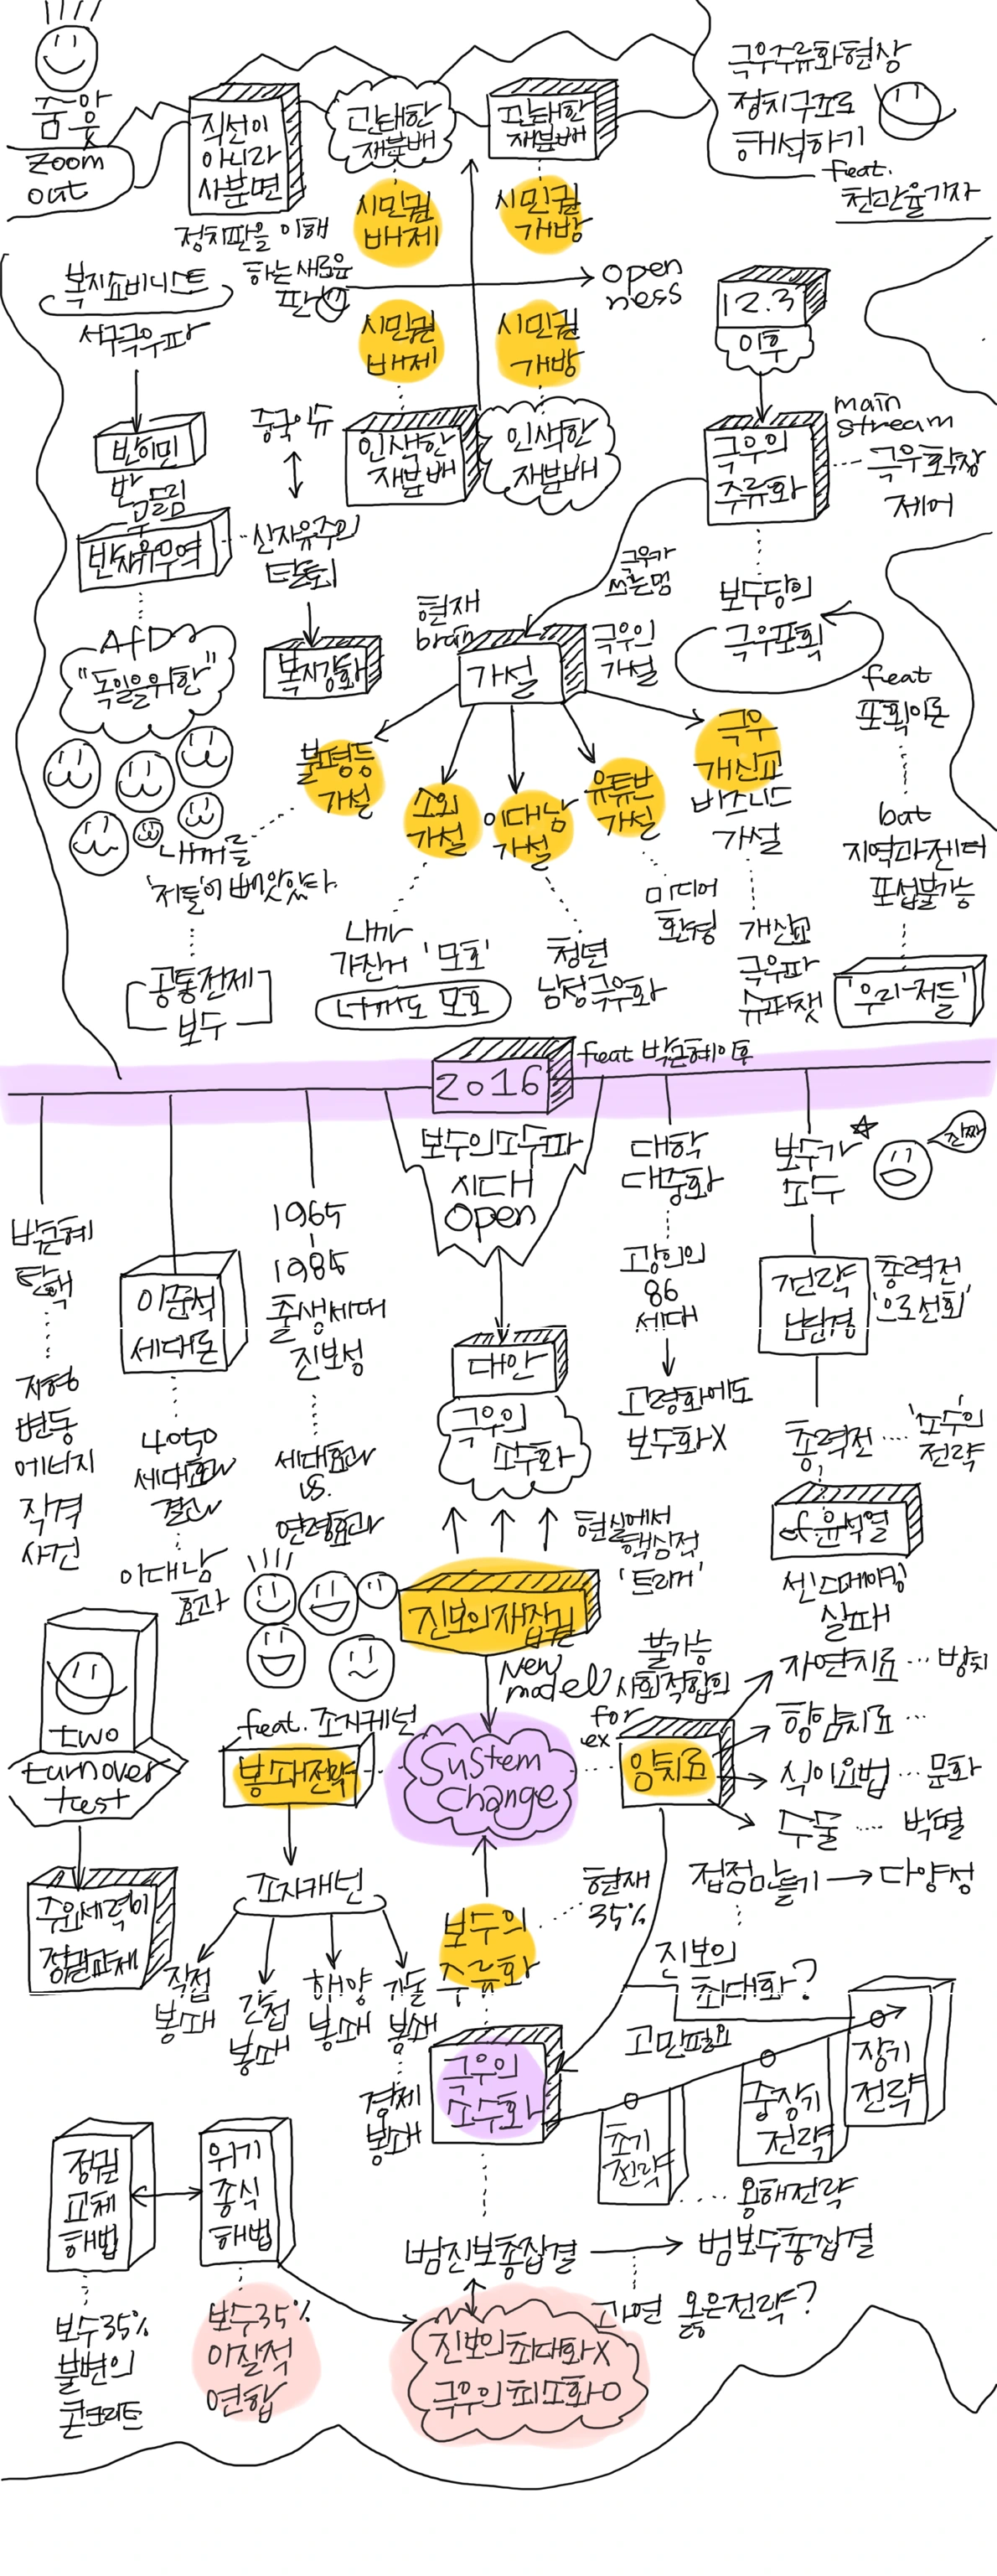 줌아웃
zoom
out
직선이
아니라
사분면
정치판을 이해
하는 새로운
판
관대한
재분배
관대한
재분배
시민권
배제
시민권
개방
open
ness
시민권
배제
시민권
개방
인색한
재분배
인색한
재분배
극우주류화현상
정치구조로
해석하기
feat.
천관율기자
복지쇼비니스트
서구극우파
반이민
반자유무역
AfD
"독일을위한"
중국이슈
신자유주의
탈퇴
복지강화
12.3
이후
극우의
주류화
main
stream
극우확장
제어
보수당의
극우포획
feat
포획이론
but
지역과젠더
포섭불가능
'우리-저들'
극우가
쓰는 멍
현재
brain
가설
극우의
가설
불평등
가설
소외
가설
이대남
가설
유튜브
가설
극우
개신교
비즈니스
가설
내꺼를
'저들'이 빼앗았다
공통전제
보수
내가
가진거 '모호'
너꺼도 모호
청년
남성극우화
미디어
환경
개신교
극우파
슈퍼챗
2016
feat 박근혜이후
박근혜
탄핵
지형
변동
에너지
직격
사건
이준석
세대론
4050
세대효과
결과
이대남
효과
1965
1985
출생세대
진보성
세대효과
vs.
연령효과
보수의소수파
시대
open
대안
극우의
소수화
대학
대중화
고강인의
86
세대
고령화에도
보수화X
보수가
소수
진짜
전략
변경
총력전
'으로선회'
총력전
'소수의
전략
of 윤석열
센스메이킹
실패
현실에서
핵심적
'트리거'
진보의재집권
New
model
불가능
사회적합의
for
ex
two
turnover
test
주요세력이
정권교체
feat. 조지케넌
봉쇄전략
System
change
암치료
자연치료 … 방치
항암치료 …
식이요법 … 문화
수술 …. 박멸
접점만들기 → 다양성
조지캐넌
직접
봉쇄
간접
봉쇄
해양
봉쇄
기술
봉쇄
경제
봉쇄
보수의
주류화
현재
35%
극우의
소수화
진보의
최대화?
고민필요
초기
전략
중장기
전략
장기
전략
용해전략
정권
교체
해법
위기
종식
해법
보수35%
불변의
콘크리트
보수35%
이질적
연합
범진보총집결
범보수총집결
과연 옳은전략?
진보의최대화X
극우의최소화O